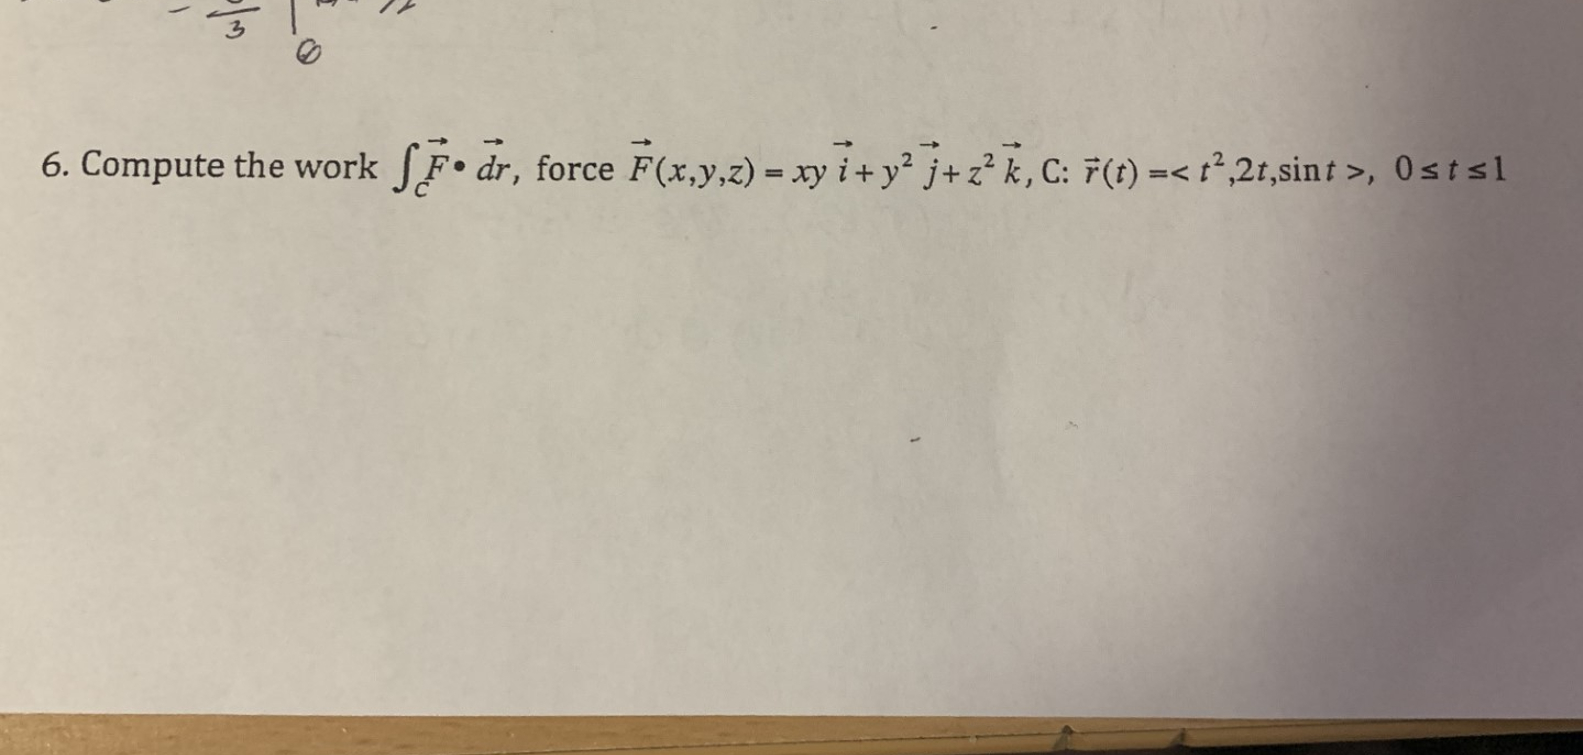 3
0
6. Compute the work ∫_C F⃗ • d⃗r, force F⃗(x,y,z) = xy i⃗ + y² j⃗ + z² k⃗, C: r⃗(t) =< t²,2t,sin t >, 0 ≤ t ≤ 1